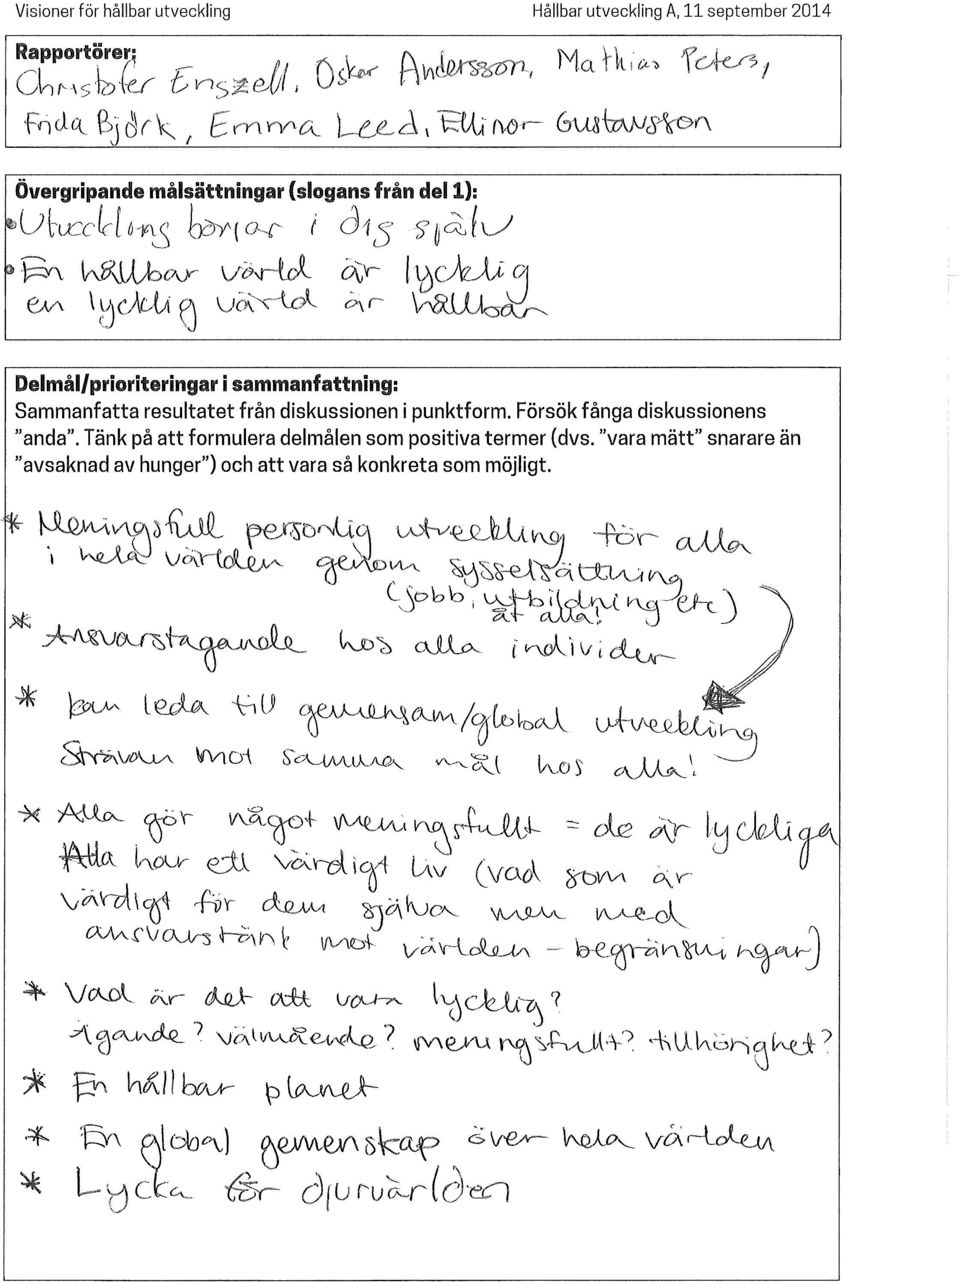 Visioner för hållbar utveckling Hållbar utveckling A, 11 september 2014
Rapportörer:
Christofer Enszell, Oskar Andersson, Mathias Peters,
Frida Björk, Emma Leed, Ellinor Gustavsson
Övergripande målsättningar (slogans från del 1):
•Utveckling börjar i dig själv
•En hållbar värld är lycklig
en lycklig värld är hållbar
Delmål/prioriteringar i sammanfattning:
Sammanfatta resultatet från diskussionen i punktform. Försök fånga diskussionens
"anda". Tänk på att formulera delmålen som positiva termer (dvs. "vara mätt" snarare än
"avsaknad av hunger") och att vara så konkreta som möjligt.
* Meningsfull personlig utveckling för alla
i hela världen genom sysselsättning
(jobb, utbildning etc)
åt alla!
* Ansvarstagande hos alla individer
* kan leda till gemensam/global utveckling
Strävan mot samma mål hos alla!
* Alla gör något meningsfullt = de är lyckliga
Alla har ett värdigt liv (vad som är
värdigt för dem själva men med
ansvarstänk mot världen - begränsningar)
* Vad är det att vara lycklig?
Ägande? välmående? meningsfullt? tillhörighet?
* En hållbar planet
* En global gemenskap över hela världen
* Lycka för djurvärlden